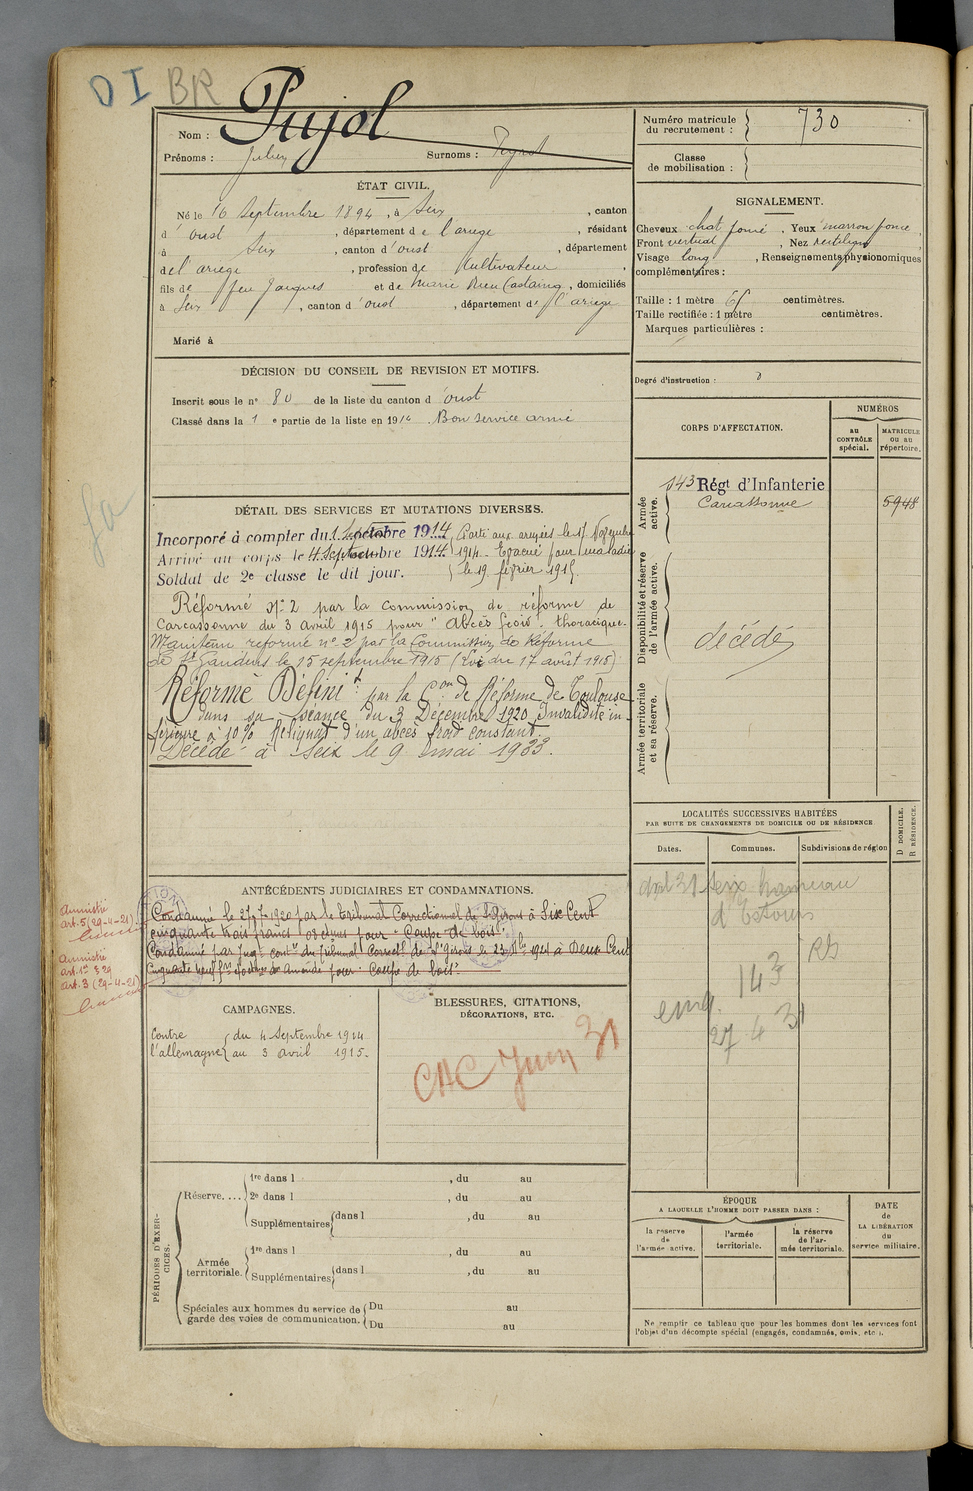 D I BR
Nom : Pujol
Prénoms : Julien Surnoms :
Numéro matricule du recrutement : 730
Classe de mobilisation :
ÉTAT CIVIL.
Né le 16 Septembre 1894, à Seix, canton
d'Oust, département de l'ariège, résidant
à Seix, canton d'oust, département
de l'ariège, profession de Cultivateur
fils de feu Jacques et de Marie, domiciliés
à Seix, canton d'oust, département de l'ariège
Marié à
SIGNALEMENT.
Cheveux chat foncé, Yeux marron foncé,
Front vertical, Nez rectiligne
Visage long, Renseignements physionomiques
complémentaires :
Taille : 1 mètre 65 centimètres.
Taille rectifiée : 1 mètre centimètres.
Marques particulières :
Degré d'instruction :
DÉCISION DU CONSEIL DE REVISION ET MOTIFS.
Inscrit sous le n° 80 de la liste du canton d'oust
Classé dans la 1e partie de la liste en 1914. Bon service armé
CORPS D'AFFECTATION.
NUMÉROS
au CONTRÔLE spécial.
MATRICULE ou au répertoire.
Armée active.
143 Régt d'Infanterie
Carcassonne 5948
Disponibilité et réserve de l'armée active.
décédé
Armée territoriale et sa réserve.
DÉTAIL DES SERVICES ET MUTATIONS DIVERSES.
Incorporé à compter du 1 Septembre 1914, Parti aux armées le 17 Novembre
Arrivé au corps le 4 Septembre 1914. 1914 - Evacué pour maladie
Soldat de 2e classe le dit jour. le 19 février 1915.
Réformé N° 2 par la Commission de réforme de
Carcassonne du 3 avril 1915 pour "abcès froid thoracique.
Maintenu réformé n° 2 par la Commission de Réforme
de St Gaudens le 15 septembre 1915 (Loi du 17 août 1915)
Réformé Définit par la Con de Réforme de Toulouse
dans sa séance du 3 Décembre 1920 Invalidité in-
férieure à 10% Reliquat d'un abcès froid constant.
Décédé à Seix le 9 mai 1933.
LOCALITÉS SUCCESSIVES HABITÉES
PAR SUITE DE CHANGEMENTS DE DOMICILE OU DE RÉSIDENCE
Dates. Communes. Subdivisions de région
D DOMICILE.
R RÉSIDENCE.
31 Seix hameau
143
27 4 31
ANTÉCÉDENTS JUDICIAIRES ET CONDAMNATIONS.
Amnistié
art. 5 (29-4-21)
Amnistié
art. 1er § 29
art. 3 (29-4-21)
Condamné le 27 7 1920 par le tribunal Correctionnel de St Girons à Six Cent
cinquante trois francs 08 cmes pour "Coupe de bois"
Condamné par Jugt contre du Tribunal Correctl de St Girons le à Deux Cent
Cinquante neuf frs d'amende pour "Coupe de bois".
CAMPAGNES.
Contre l'allemagne du 4 Septembre 1914
au 3 avril 1915.
BLESSURES, CITATIONS,
DÉCORATIONS, ETC.
CAC Juin 31
PÉRIODES D'EXERCICES.
Réserve.... 1re dans l , du au
2e dans l , du au
Supplémentaires dans l , du au
du au
Armée territoriale. 1re dans l , du au
Supplémentaires dans l , du au
Spéciales aux hommes du service de garde des voies de communication. Du au
Du au
ÉPOQUE
A LAQUELLE L'HOMME DOIT PASSER DANS :
la réserve de l'armée active.
l'armée territoriale.
la réserve de l'armée territoriale.
DATE de LA LIBÉRATION du service militaire.
Ne remplir ce tableau que pour les hommes dont les services font
l'objet d'un décompte spécial (engagés, condamnés, omis, etc.).